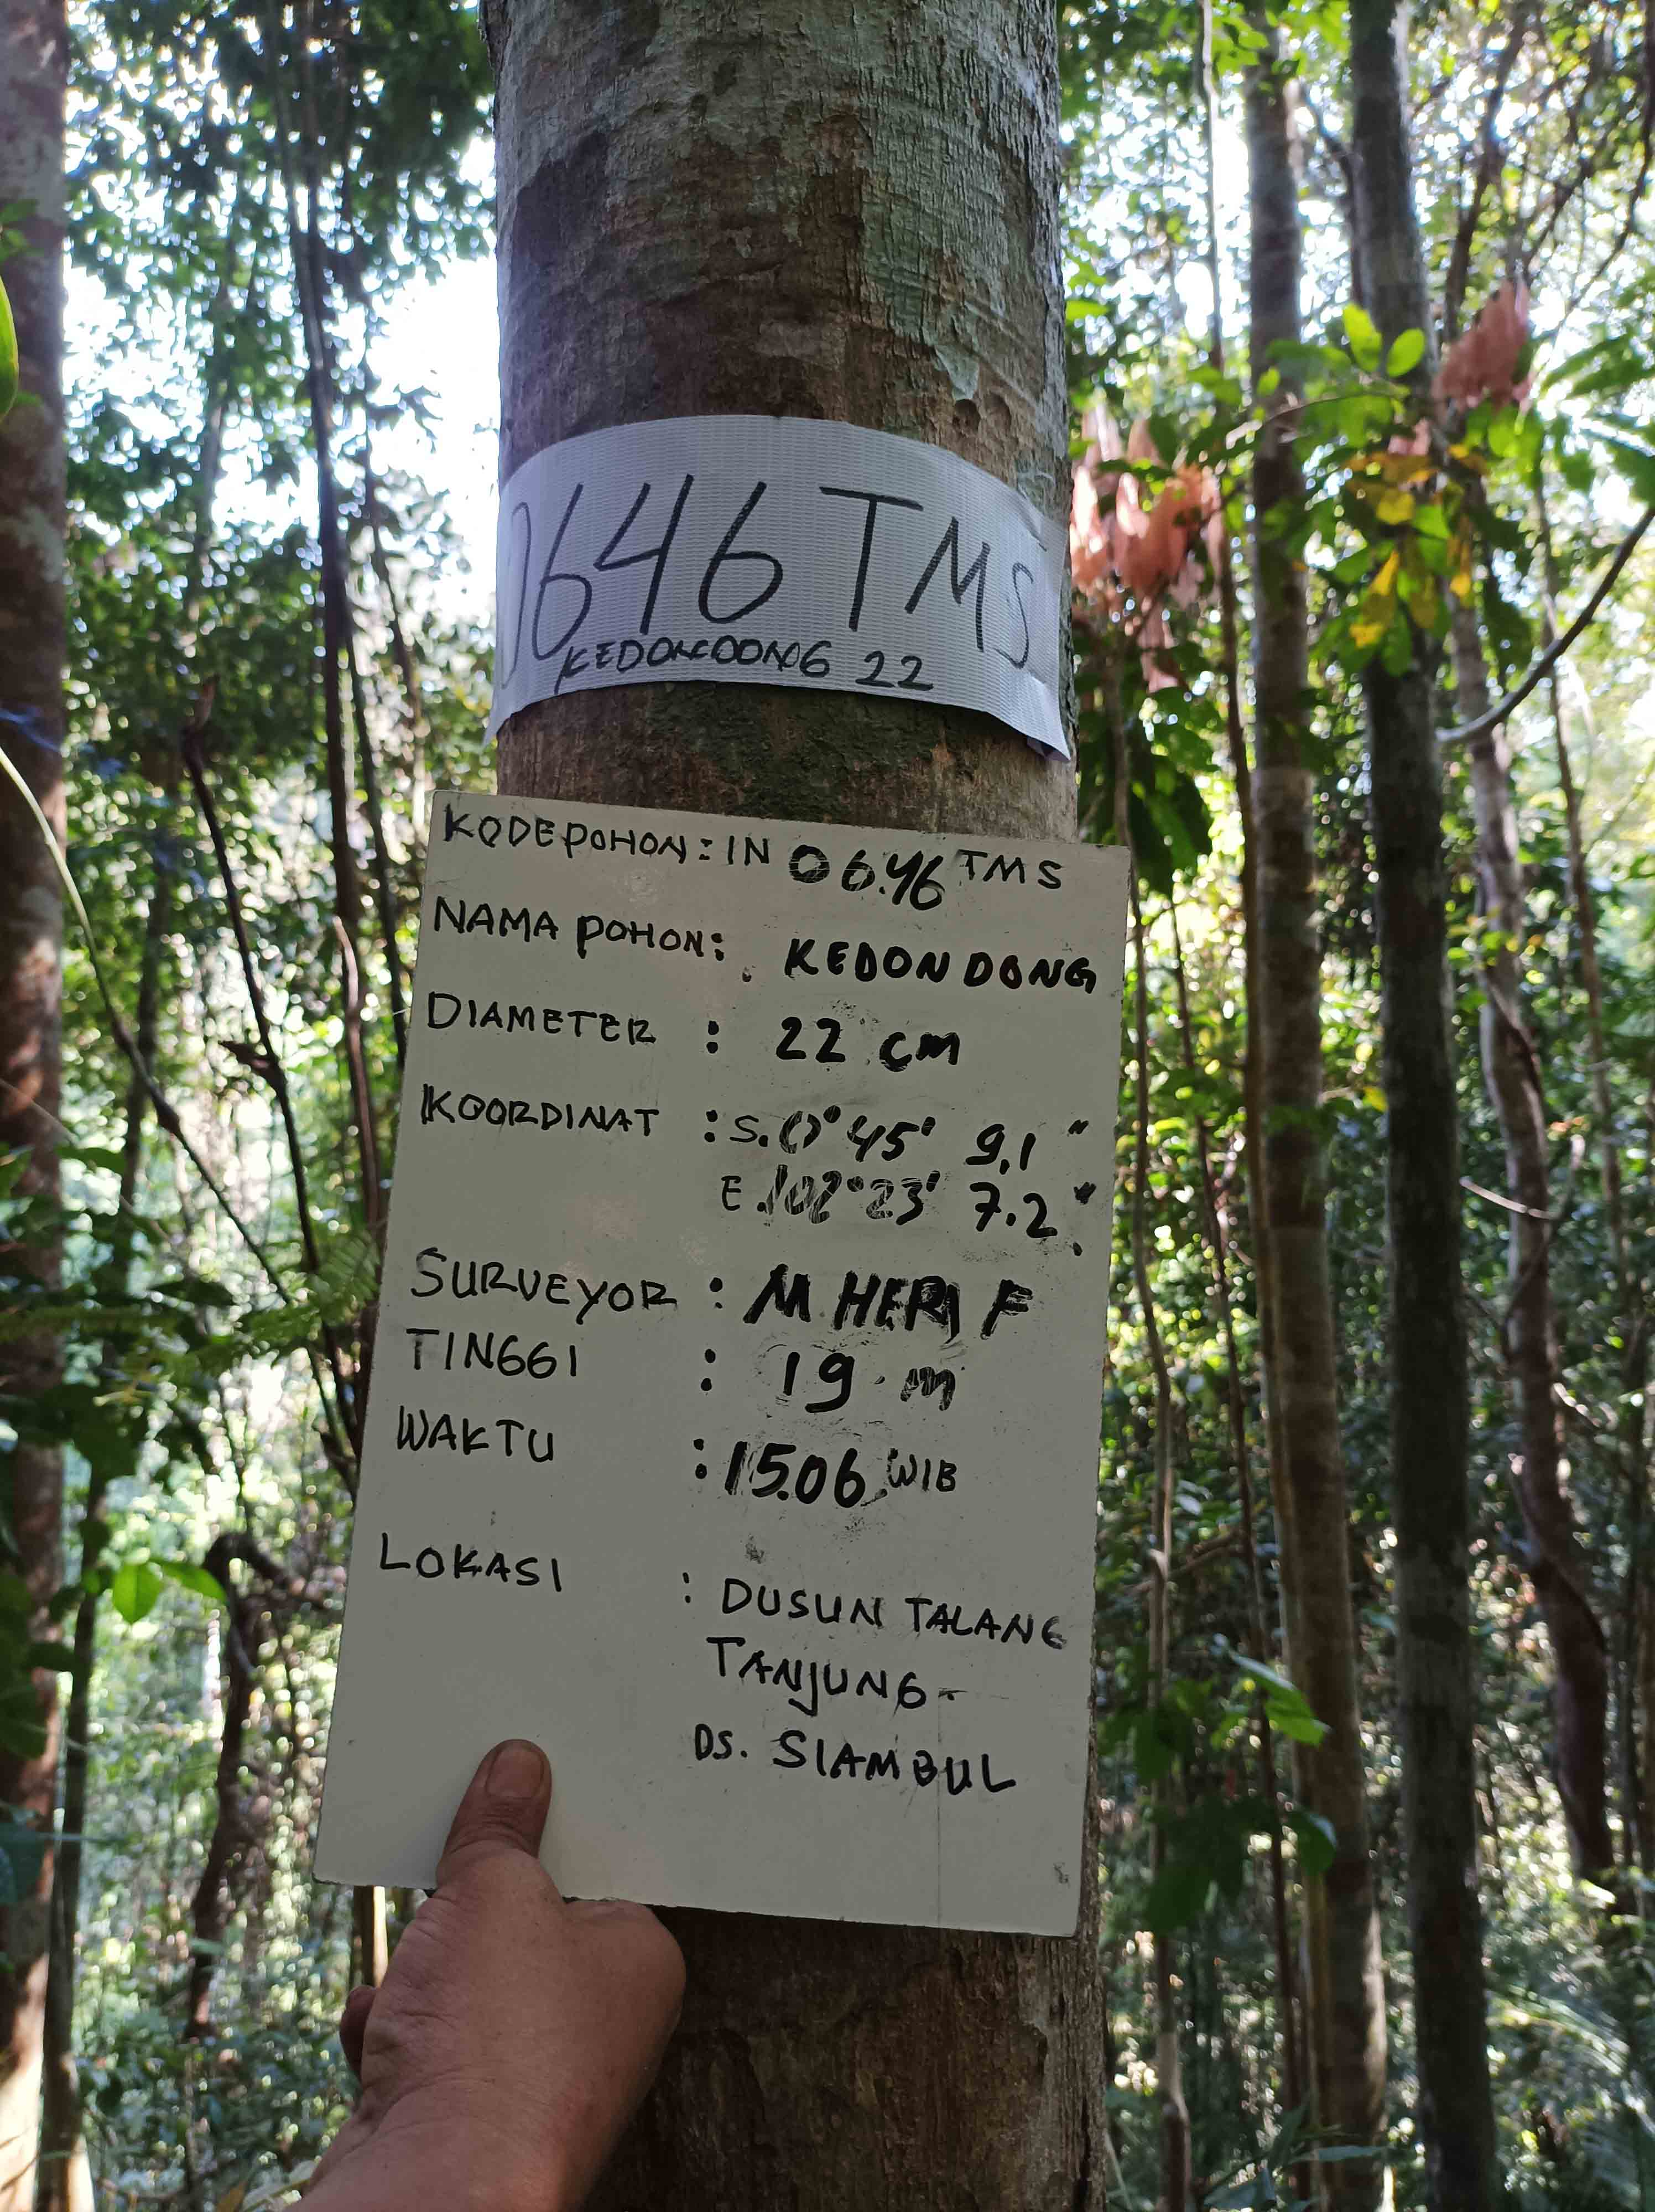 0646 TMS
KEDONDONG 22
KODE POHON : IN 0646 TMS
NAMA POHON : KEDONDONG
DIAMETER : 22 cm
KOORDINAT : S. 0° 45' 9,1"
E. 102° 23' 7.2"
SURVEYOR : M HERI F
TINGGI : 19 m
WAKTU : 15.06 WIB
LOKASI : DUSUN TALANG
TANJUNG -
DS. SIAMBUL